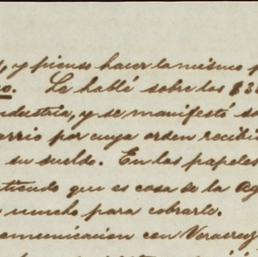 , y pienso hacer lo mismo
Le hablé sobre los $3
industria, y se manifestó
por cuya orden recibi
su sueldo. En los papeles
que es cosa de la
mucho para cobrarlo.
comunicacion con Veracruz